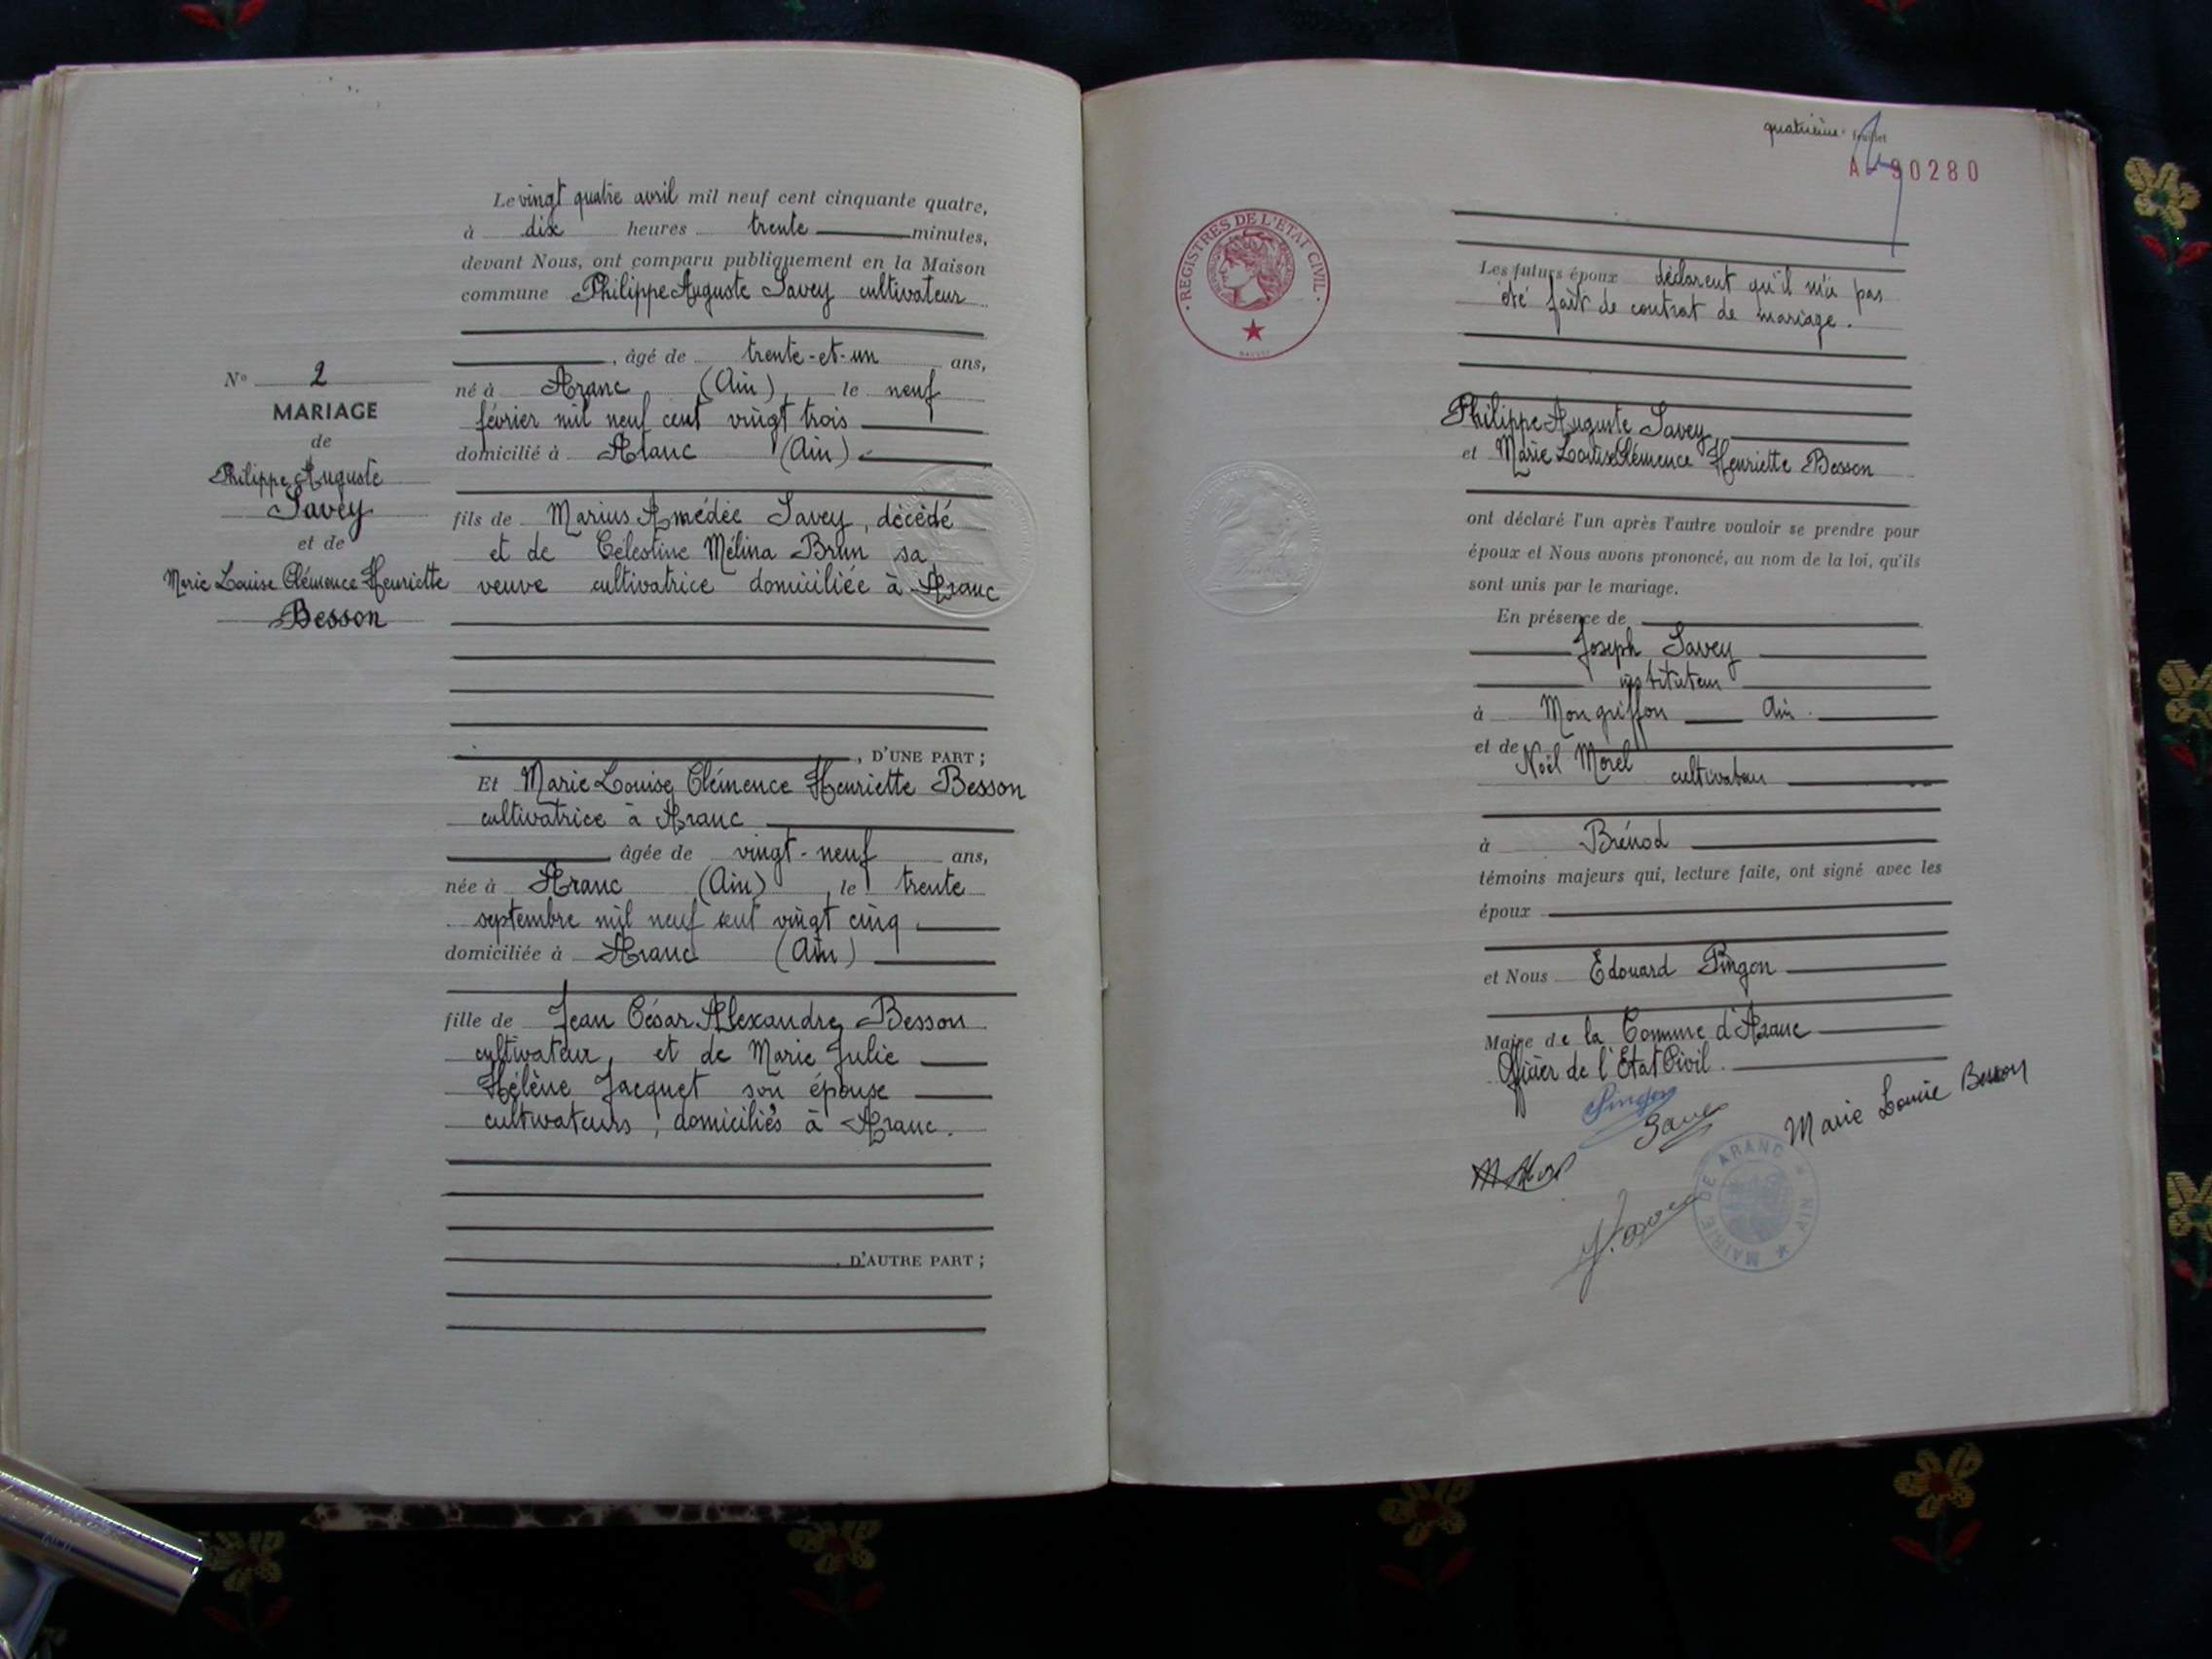 Le vingt quatre avril mil neuf cent cinquante quatre,
à dix heures trente minutes,
devant Nous, ont comparu publiquement en la Maison
commune Philippe Auguste Savey cultivateur
, âgé de trente-et-un ans,
né à Aranc (Ain), le neuf
février mil neuf cent vingt trois
domicilié à Aranc (Ain)
fils de Marius Amédée Savey, décédé
et de Célestine Mélina Brun sa
veuve cultivatrice domiciliée à Aranc
, D'UNE PART ;
Et Marie Louise Clémence Henriette Besson
cultivatrice à Aranc
âgée de vingt-neuf ans,
née à Aranc (Ain), le trente
septembre mil neuf cent vingt cinq
domiciliée à Aranc (Ain)
fille de Jean César Alexandre Besson
cultivateur, et de Marie Julie
Hélène Jacquet son épouse
cultivateurs, domiciliés à Aranc.
, D'AUTRE PART ;
N° 2
MARIAGE
de
Philippe Auguste
Savey
et de
Marie Louise Clémence Henriette
Besson
quatrième feuillet
A 90280
REGISTRES DE L'ETAT CIVIL
Les futurs époux déclarent qu'il n'a pas
été fait de contrat de mariage.
Philippe Auguste Savey
et Marie Louise Clémence Henriette Besson
ont déclaré l'un après l'autre vouloir se prendre pour
époux et Nous avons prononcé, au nom de la loi, qu'ils
sont unis par le mariage.
En présence de
Joseph Savey
instituteur
à Mongriffon Ain.
et de
Noël Morel cultivateur
à Brénod
témoins majeurs qui, lecture faite, ont signé avec les
époux
et Nous Edouard Pingon
Maire de la Commune d'Aranc
Officier de l'Etat Civil.
Pingon
Savey
Marie Louise Besson
MAIRIE DE ARANC * AIN *